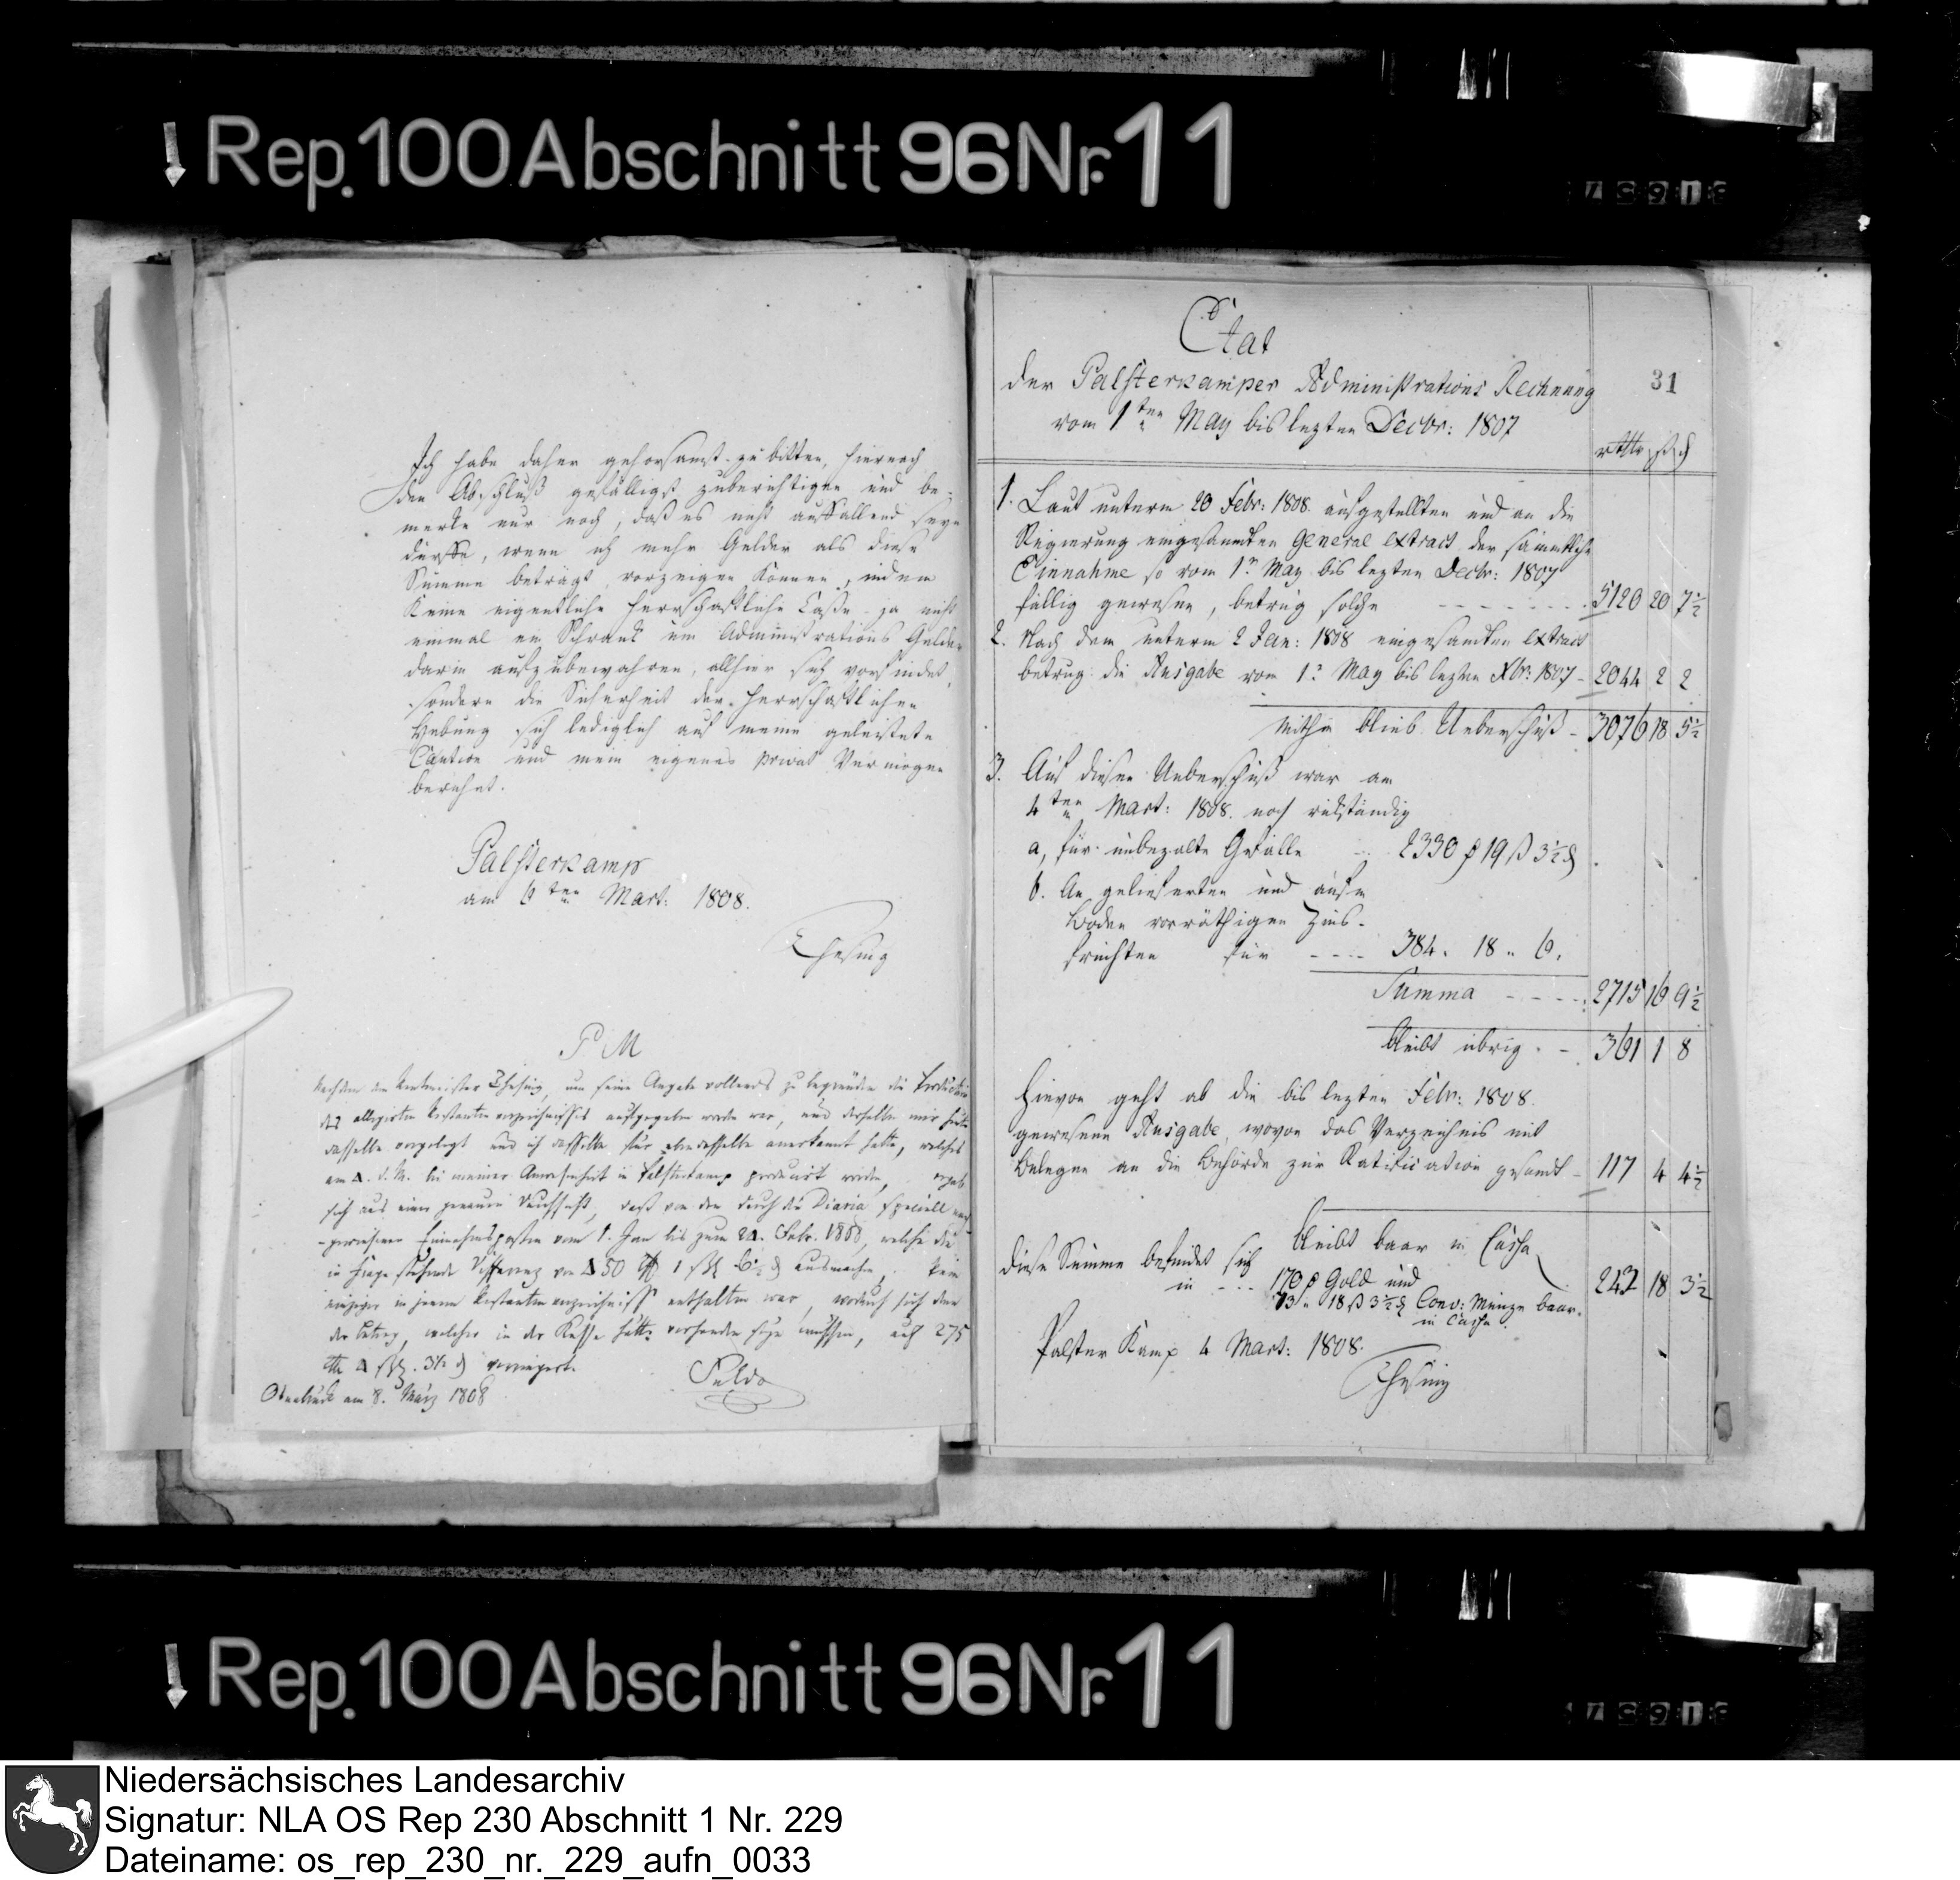 Rep. 100 Abschnitt 96 Nr. 11
Ich habe daher gehorsamst zu bitten, hiernach
den Abschluß gefälligst zuberichtigen und be-
merke nur noch, daß es nicht auffallend seyn
dürffe, wenn ich mehr Gelder als diese
Summe beträgt, vorzeigen könne, indem
keine eigentliche herrschaftliche Casse ja nicht
einmal ein Schrank um Administrations Gelder
darin aufzubewahren, allhier sich vorfindet,
sondern die Sicherheit der herrschaftlichen
Hebung sich lediglich auf meine geleistete
Caution und mein eigenes privat Vermögen
beruhet.
Palsterkamp
am 6ten Mart: 1808.
Thesing
P M
Nachdem dem Rentmeister Thesing, um seine Angabe vollends zu begründen die Production
des allegirten Restantenverzeichnisses aufgegeben worden war, und derselbe mir heute
dasselbe vorgelegt und ich dasselbe für ebendasselbe anerkannt hatte, welches
am 4. d. M. bei meiner Anwesenheit in Palsterkamp producirt worden, ergab
sich aus einer genauen Durchsicht, daß von den durch die Diaria speciell nach-
gewiesenen Einnahmsposten vom 1. Jan bis zum 24. Febr. 1808, welche die
in Frage stehende Differenz von ausmachen, kein
einziger in jenem Restantenverzeichniß enthalten war, wodurch sich denn
der Betrag, welcher in der Kasse hätte vorhanden seyn müssen, auf 275
verringert.
Osnabrück am 8. März 1808
Struckmann
31
Etat
der Palsterkamper Administrations Rechnung
vom 1ten May bis lezten Decbr: 1807
rthlr ß d
1. Laut unterm 20 Febr: 1808 ausgestellten und an die
Regierung eingesandten General extract der sämmtlichen
Einnahme so vom 1n May bis lezten Decbr: 1807
fällig gewesen, betrug solche - - - - 5120 20 7½
2. Nach dem unterm 2 Jan: 1808 eingesandten extract
betrug die Ausgabe vom 1n May bis lezten Xbr: 1807 - 2044 2 2
mithin blieb Ueberschuß - 3076 18 5½
3. Auf diesen Ueberschuß war am
4ten Mart: 1808. noch rückständig
a, für unbezalte Gefälle - 2330 ₰ 19 ß 3½ d
b. An gelieferten und aufm
Boden vorräthigen Zins-
früchten für - - - - 384. 18 " 6.
Summa - - - - 2715 16 9½
bleibt übrig. - 361 1 8
Hievon geht ab die bis lezten Febr: 1808.
gewesene Ausgabe, wovon das Verzeichnis mit
Belegen an die Behörde zur Ratification gesandt - 117 4 4½
bleibt baar in Cassa
243 18 3½
diese Summe befindet sich
in - - - 170 ₰ Gold und
73 " 18 ß 3½ d Conv: Münze baar.
in Cassa.
Palster Kamp 4 Mart: 1808.
Thesing
Rep. 100 Abschnitt 96 Nr. 11
Niedersächsisches Landesarchiv
Signatur: NLA OS Rep 230 Abschnitt 1 Nr. 229
Dateiname: os_rep_230_nr._229_aufn_0033